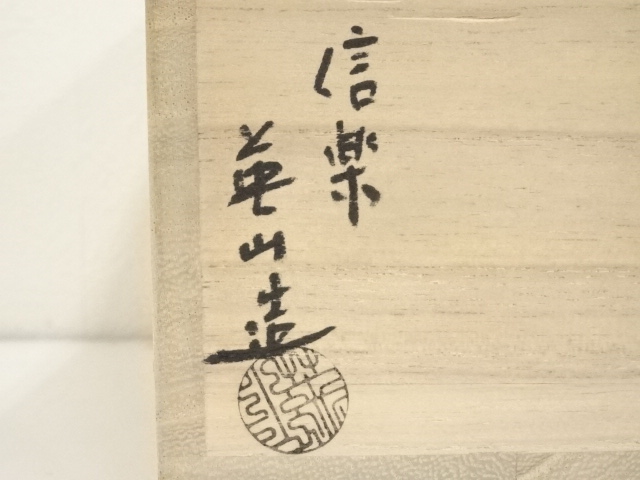 信楽
英山造